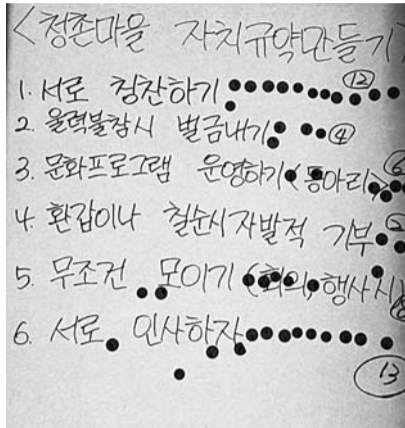 <청존마을 자치규약만들기>
1. 서로 칭찬하기 ⑫
2. 울력불참시 벌금내기 ④
3. 문화프로그램 운영하기(동아리) ⑥
4. 환갑이나 칠순시 자발적 기부 ②
5. 무조건 모이기 (회의, 행사시)
6. 서로 인사하자
⑬